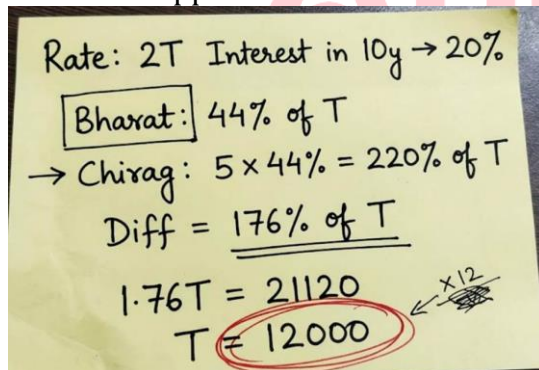 Rate: 2T Interest in 10y → 20%
Bharat: 44% of T
→ Chirag: 5 × 44% = 220% of T
Diff = 176% of T
1.76T = 21120
×12
T = 12000